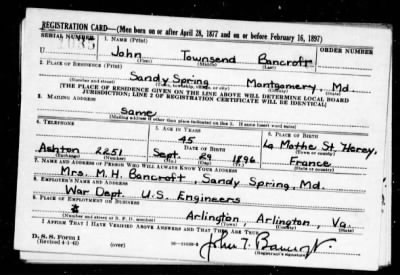 REGISTRATION CARD—(Men born on or after April 28, 1877 and on or before February 16, 1897)
SERIAL NUMBER 1. NAME (Print) ORDER NUMBER
U John Townsend Bancroft
(First) (Middle) (Last)
2. PLACE OF RESIDENCE (Print)
Sandy Spring Montgomery, Md.
(Number and street) (Town, township, village, or city) (County) (State)
(THE PLACE OF RESIDENCE GIVEN ON THE LINE ABOVE WILL DETERMINE LOCAL BOARD
JURISDICTION; LINE 2 OF REGISTRATION CERTIFICATE WILL BE IDENTICAL)
3. MAILING ADDRESS
Same
(Mailing address if other than place indicated on line 2. If same insert word same)
4. TELEPHONE 5. AGE IN YEARS 6. PLACE OF BIRTH
45 La Mothe St. Heray,
DATE OF BIRTH (Town or county)
Ashton 2251 Sept. 29 1896 France
(Exchange) (Number) (Mo.) (Day) (Yr.) (State or country)
7. NAME AND ADDRESS OF PERSON WHO WILL ALWAYS KNOW YOUR ADDRESS
Mrs. M. H. Bancroft, Sandy Spring, Md.
8. EMPLOYER'S NAME AND ADDRESS
War Dept. U.S. Engineers
9. PLACE OF EMPLOYMENT OR BUSINESS
Arlington, Arlington, Va.
(Number and street or R. F. D. number) (Town) (County) (State)
I AFFIRM THAT I HAVE VERIFIED ABOVE ANSWERS AND THAT THEY ARE TRUE.
D. S. S. Form 1
(Revised 4-1-42) (over) John T. Bancroft
(Registrant's signature)